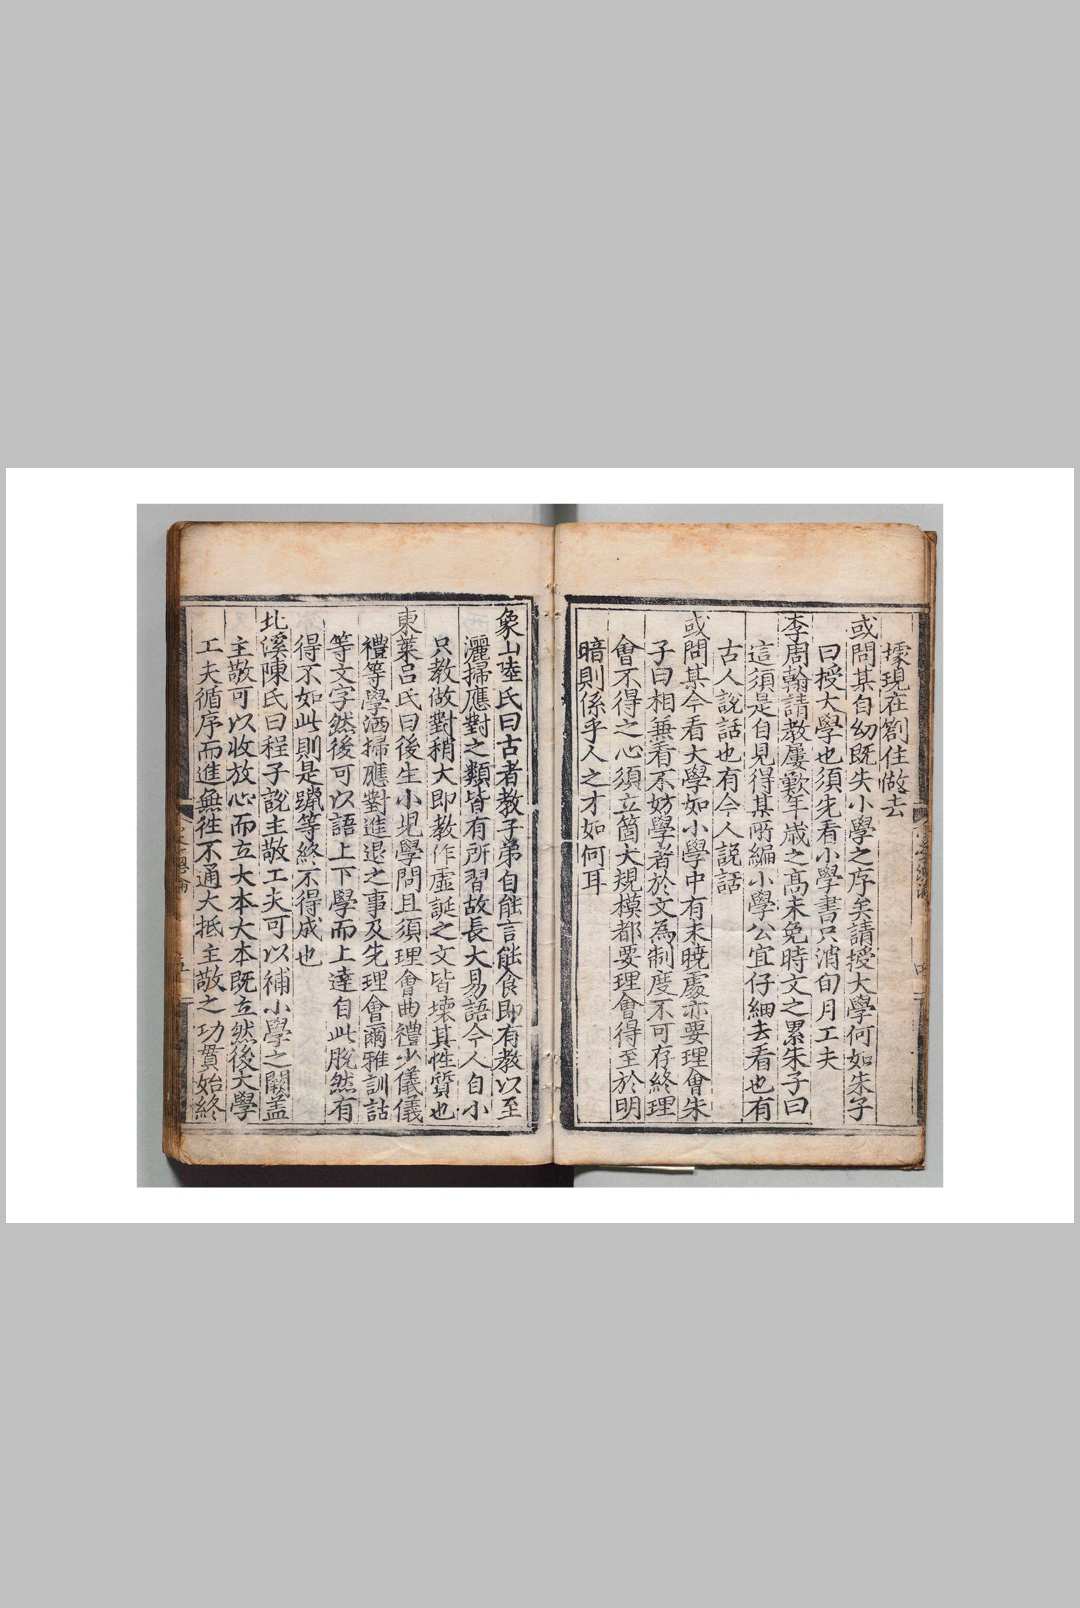 據現在劄住做去
或問某自幼既失小學之序矣請授大學何如朱子
曰授大學也須先看小學書只消旬月工夫
李周翰請教屢歎年歲之高未免時文之累朱子曰
這須是自見得某所編小學公宜仔細去看也有
古人說話也有今人說話
或問某今看大學如小學中有未曉處亦要理會朱
子曰相兼看不妨學者於文為制度不可存終理
會不得之心須立箇大規模都要理會得至於明
暗則係乎人之才如何耳
象山陸氏曰古者教子弟自能言能食即有教以至
灑掃應對之類皆有所習故長大易語今人自小
只教做對稍大即教作虛誕之文皆壞其性質也
東萊呂氏曰後生小兒學問且須理會曲禮少儀儀
禮等學洒掃應對進退之事及先理會爾雅訓詁
等文字然後可以語上下學而上達自此脫然有
得不如此則是躐等終不得成也
北溪陳氏曰程子說主敬工夫可以補小學之闕盖
主敬可以收放心而立大本大本既立然後大學
工夫循序而進無徃不通大抵主敬之功貫始終